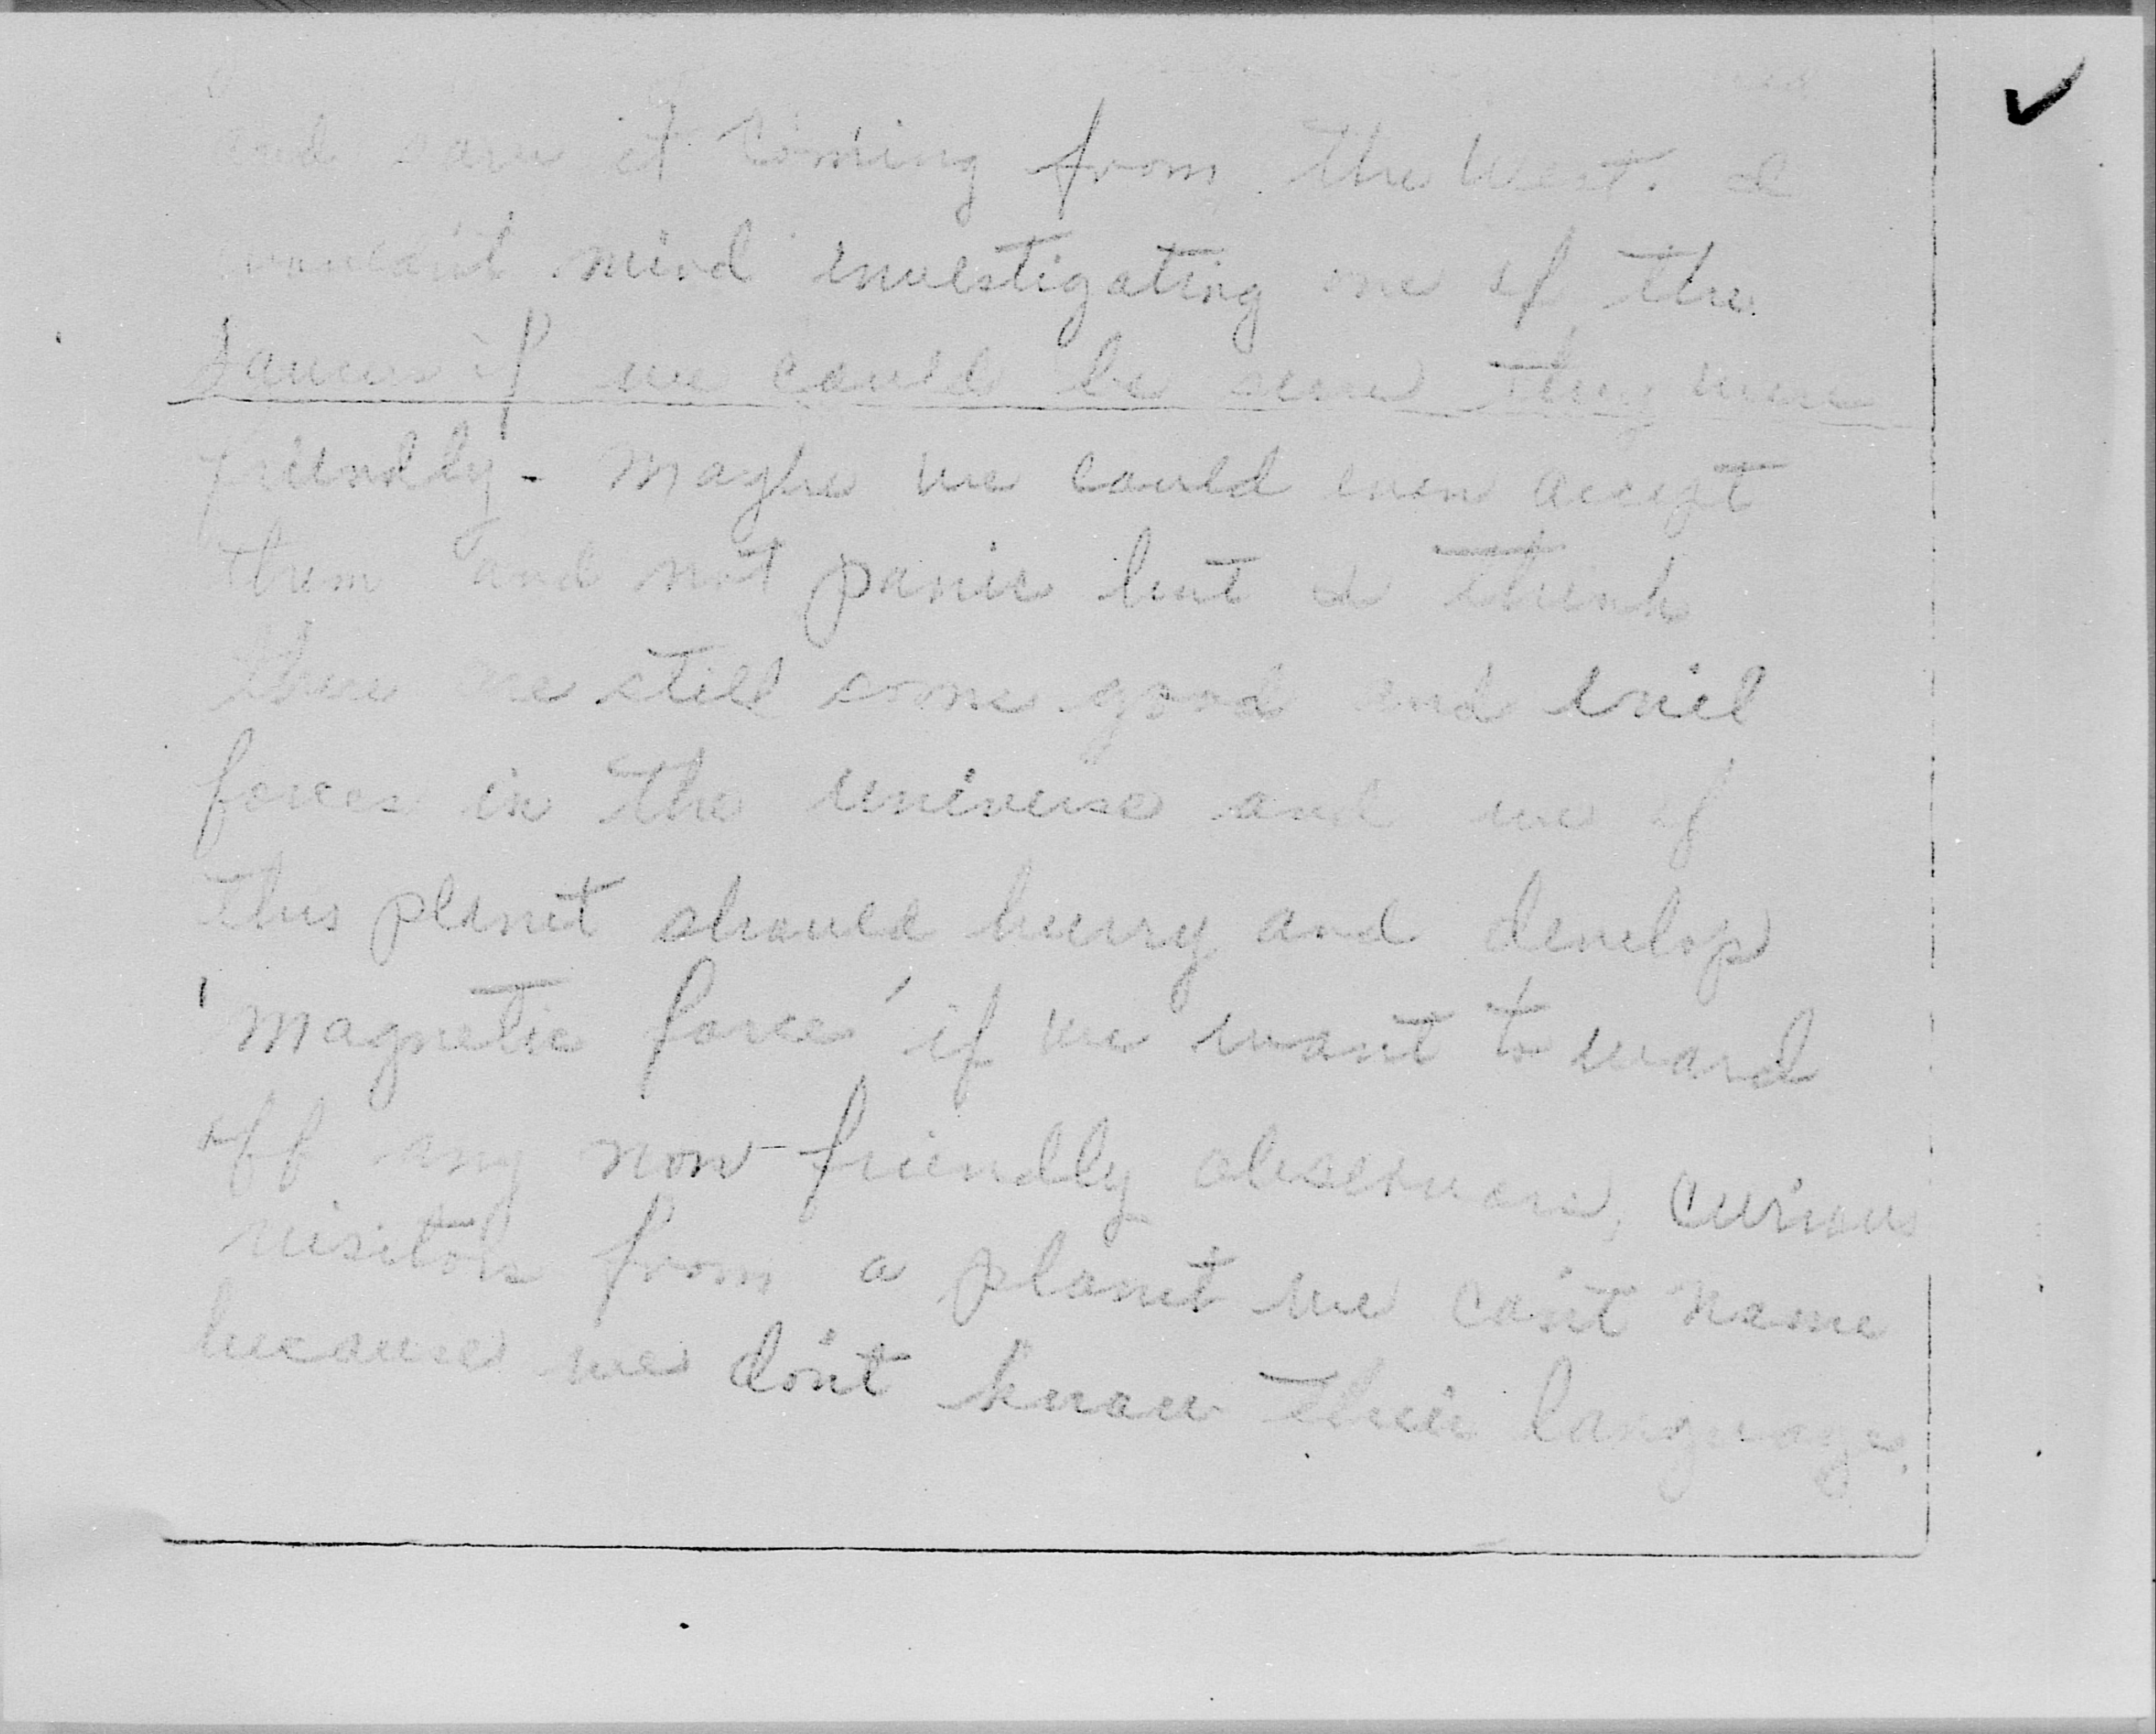 and saw it coming from the West. I
wouldn't mind investigating one of the
saucers if we could be sure they were
friendly - Maybe we could even accept
them and not panic but I think
there are still some good and evil
forces in the universe and we of
this planet should hurry and develop
'magnetic force' if we want to ward
off any non-friendly observers, curious
visitors from a planet we can't name
because we don't know their language.